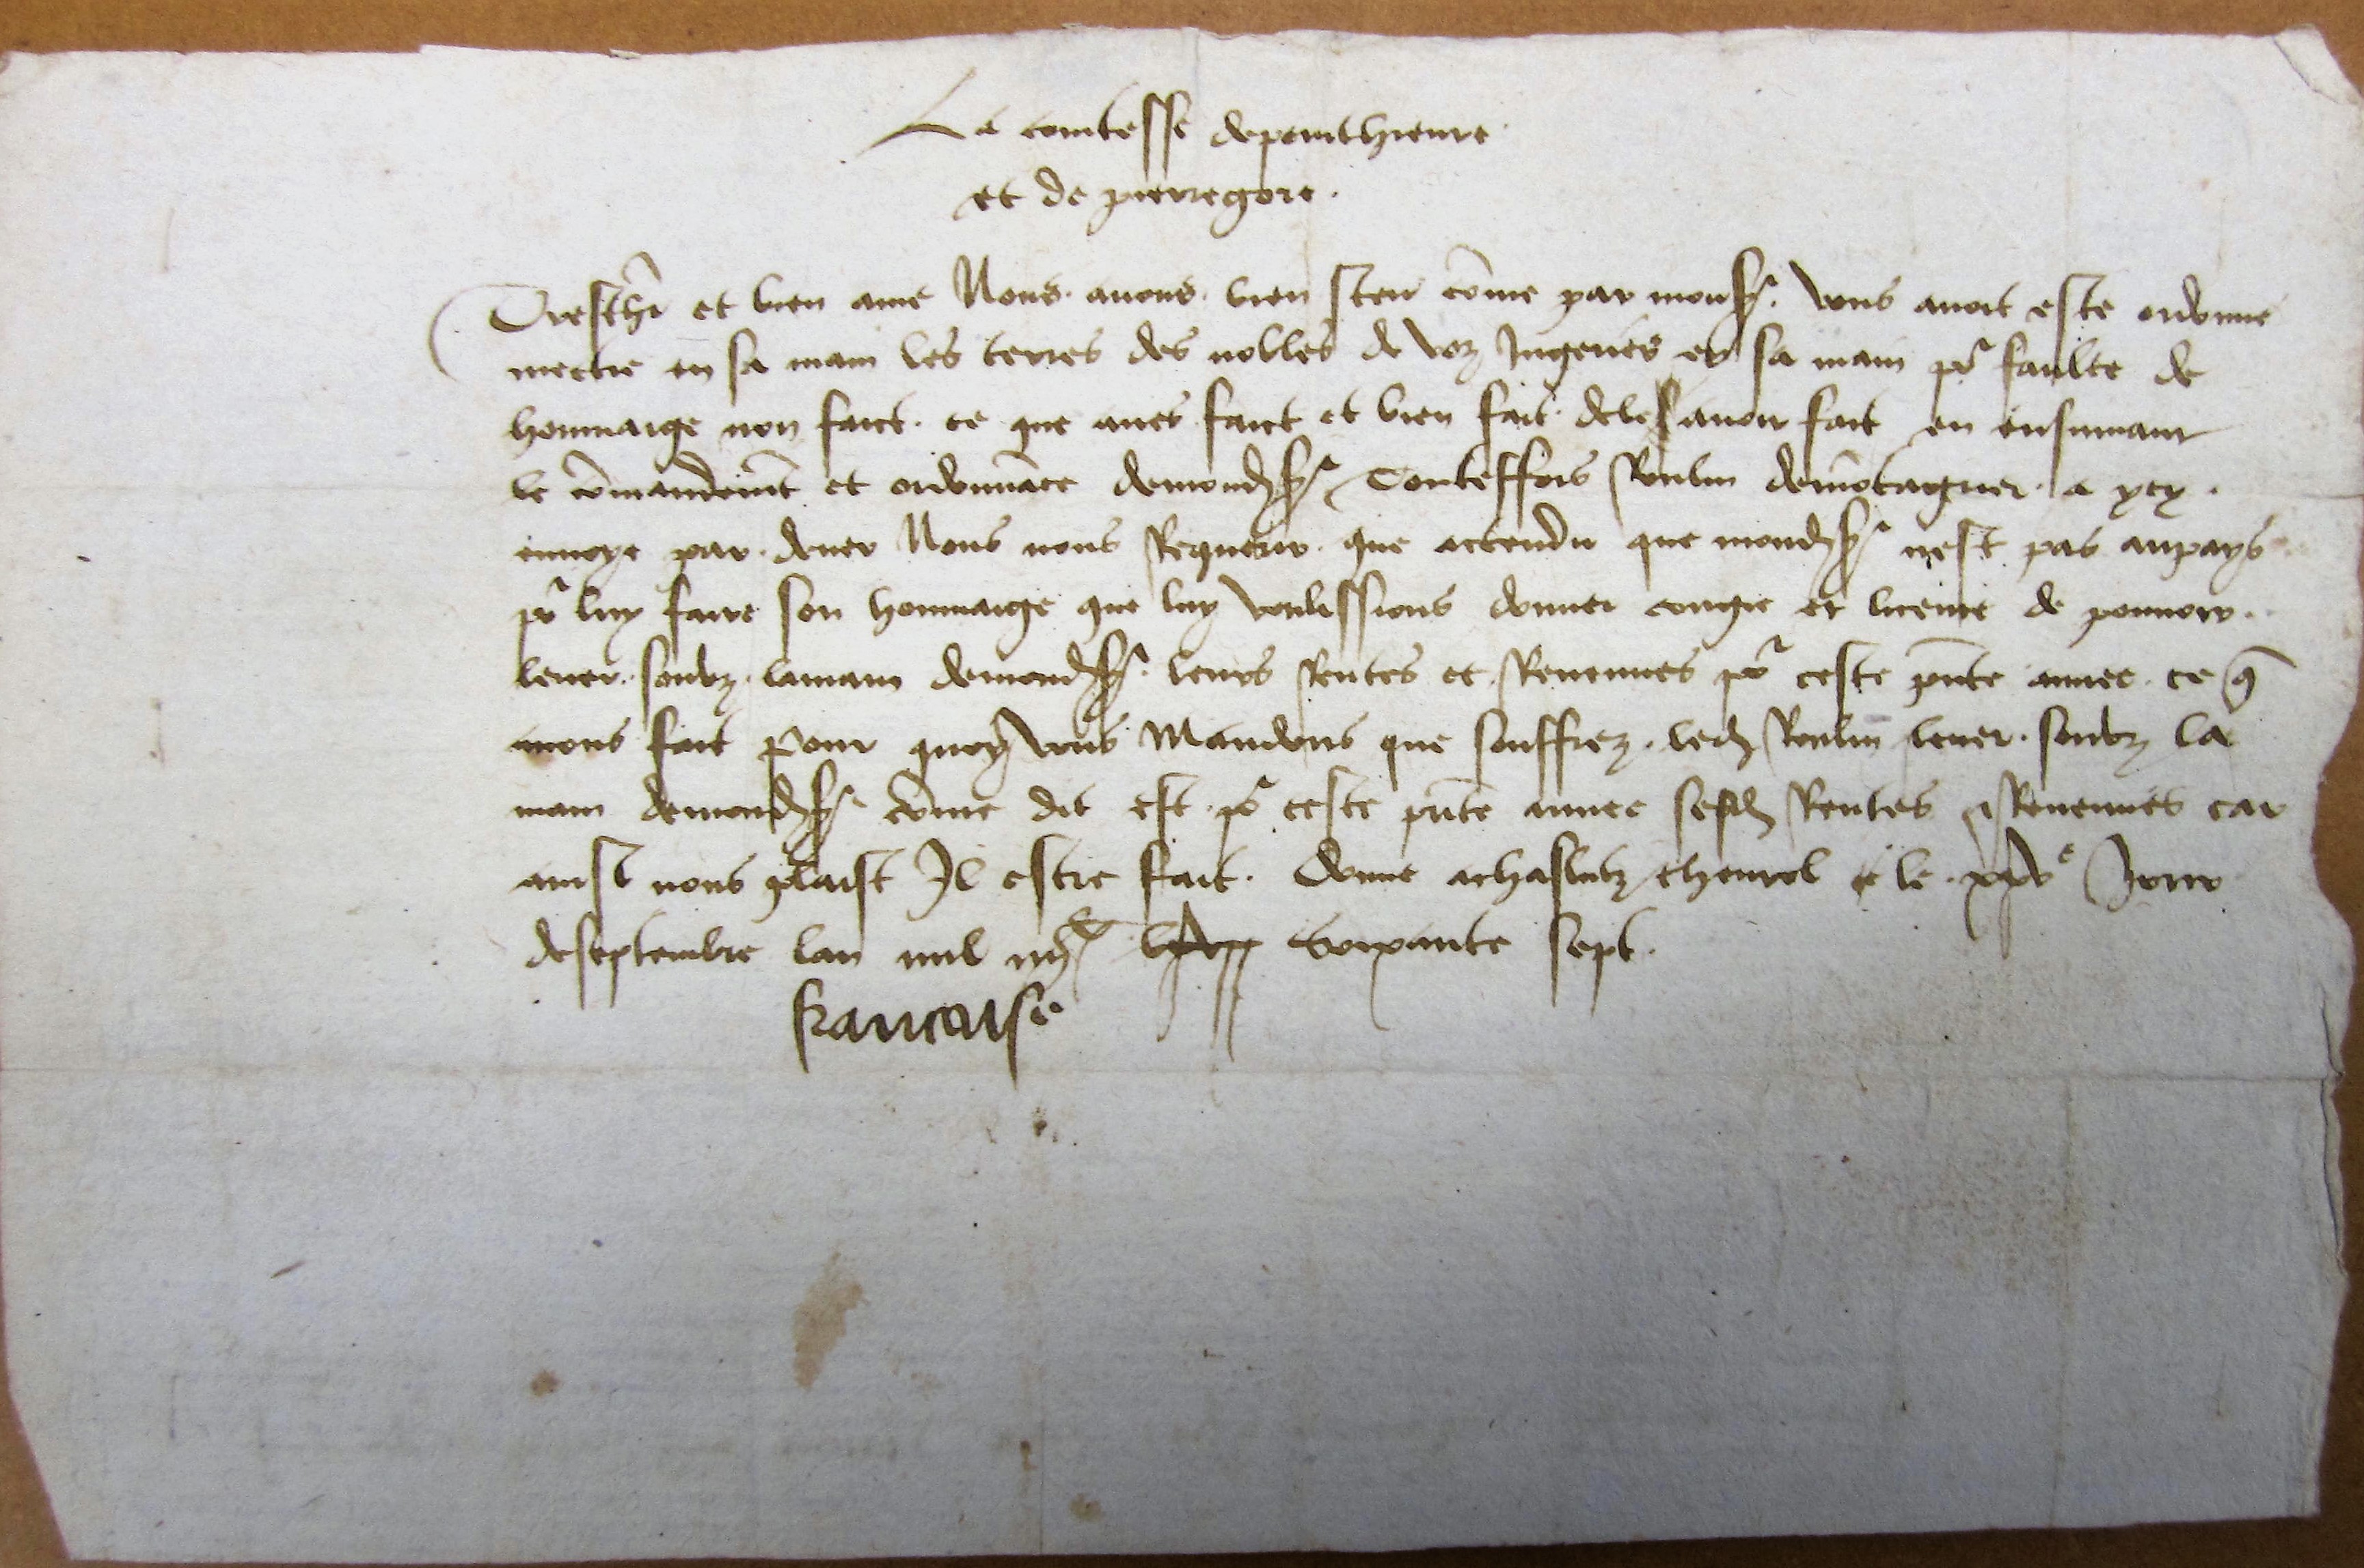 La comtesse depenthieure
et de pierregore.
Trescher et bien ame Nous auons bien sceu cōme par monsr. vous auoit este ordonne
mectre en sa main les terres des nobles de voz Jugeries en sa main pr faulte de
hommaige non faict. ce que aues faict et bien fait de les auoir fait en ensuiuant
le cōmandemēt et ordonnāce demondsr Touteffois Roulin demōtaigner a yey
enuoye par deuer Nous nous Requerir que actendu que mondsr nest pas aupays
pr luy faire son hommaige que luy voulissions donner congie et licence de pouuoir
leuer soubz lamain demondsr. leurs Rentes et Reuenues pr ceste pn̄te annee ce q̄
auons fait Pour quoy vous Mandons que souffrez led Roulin leuer soubz la
main demondsr cōme dit est pr ceste pn̄te annee sesd Rentes et Reuenues car
ainsi nous plaist Il estre fait. Donne achaslutz cheurol le xxve Jour
deseptembre lan mil iiijc soixante sept.
francoise